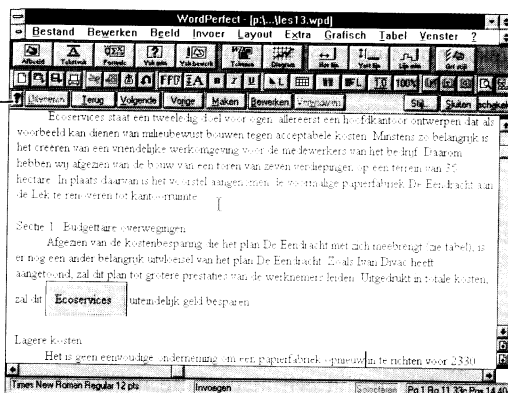 WordPerfect - [p:\...\les13.wpd]
Bestand Bewerken Beeld Invoer Layout Extra Grafisch Tabel Venster ?
Afbeeld Tekstvak Formule Diagram
100%
? Uitvoeren Terug Volgende Vorige Maken Bewerken Vervangen Stijl... Sluiten
Ecoservices staat een tweeledig doel voor ogen: allereerst een hoofdkantoor ontwerpen dat als
voorbeeld kan dienen van milieubewust bouwen tegen acceptabele kosten. Minstens zo belangrijk is
het creëren van een vriendelijke werkomgeving voor de medewerkers van het bedrijf. Daarom
hebben wij afgezien van de bouw van een toren van zeven verdiepingen op een terrein van
hectare. In plaats daarvan is het voorstel aangenomen de voormalige papierfabriek De Eendracht aan
de Lek te renoveren tot kantoorruimte.
Sectie 1 Budgettaire overwegingen
Afgezien van de kostenbesparing die het plan De Eendracht met zich meebrengt (zie tabel), is
er nog een ander belangrijk uitvloeisel van het plan De Eendracht. Zoals Ivan Divac heeft
aangetoond, zal dit plan tot grotere prestaties van de werknemers leiden. Uitgedrukt in totale kosten,
zal dit Ecoservices uiteindelijk geld besparen
Lagere kosten
Het is geen eenvoudige onderneming om een papierfabriek opnieuw in te richten voor 2330
Times New Roman Regular 12 pts Invoegen Selecteren Pg 1 Rg 11.33c Pos 14.40